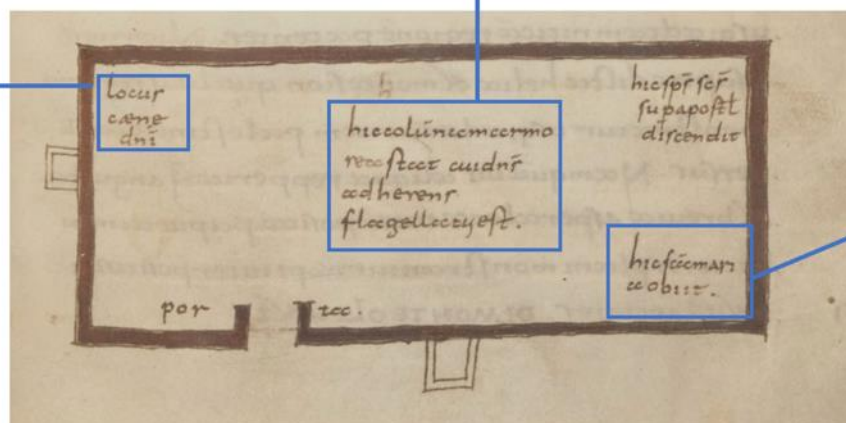 locus
cæne
dnī
hic colūna marmo
rea stat cui dnš
adherens
flagellatus est.
hic spš scš
sup apostł
discendit
hic scæ mari
a obiit.
por ta.